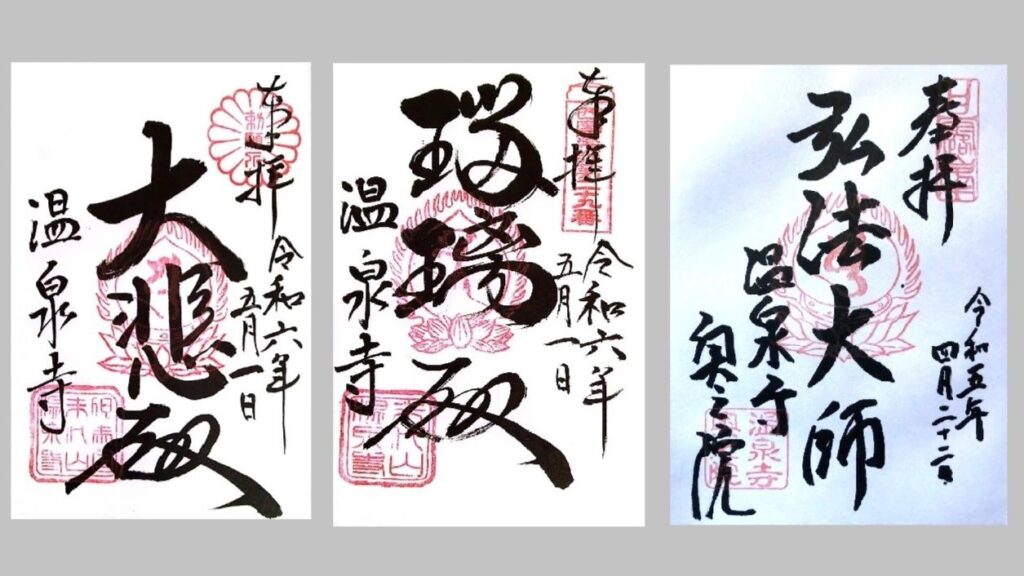 奉拝
令和六年
五月一日
大悲殿
温泉寺
奉拝
令和六年
五月一日
瑠璃殿
温泉寺
奉拝
令和五年
四月二十二日
弘法大師
温泉寺
奥之院
温泉寺